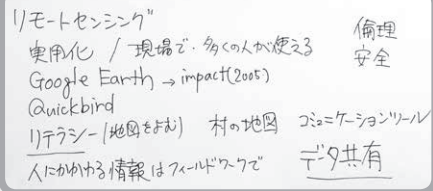 リモートセンシング
実用化 / 現場で・多くの人が使える
倫理
安全
Google Earth → impact(2005)
Quickbird
リテラシー(地図をよむ) 村の地図 コミュニケーションツール
人にかかわる情報はフィールドワークで データ共有